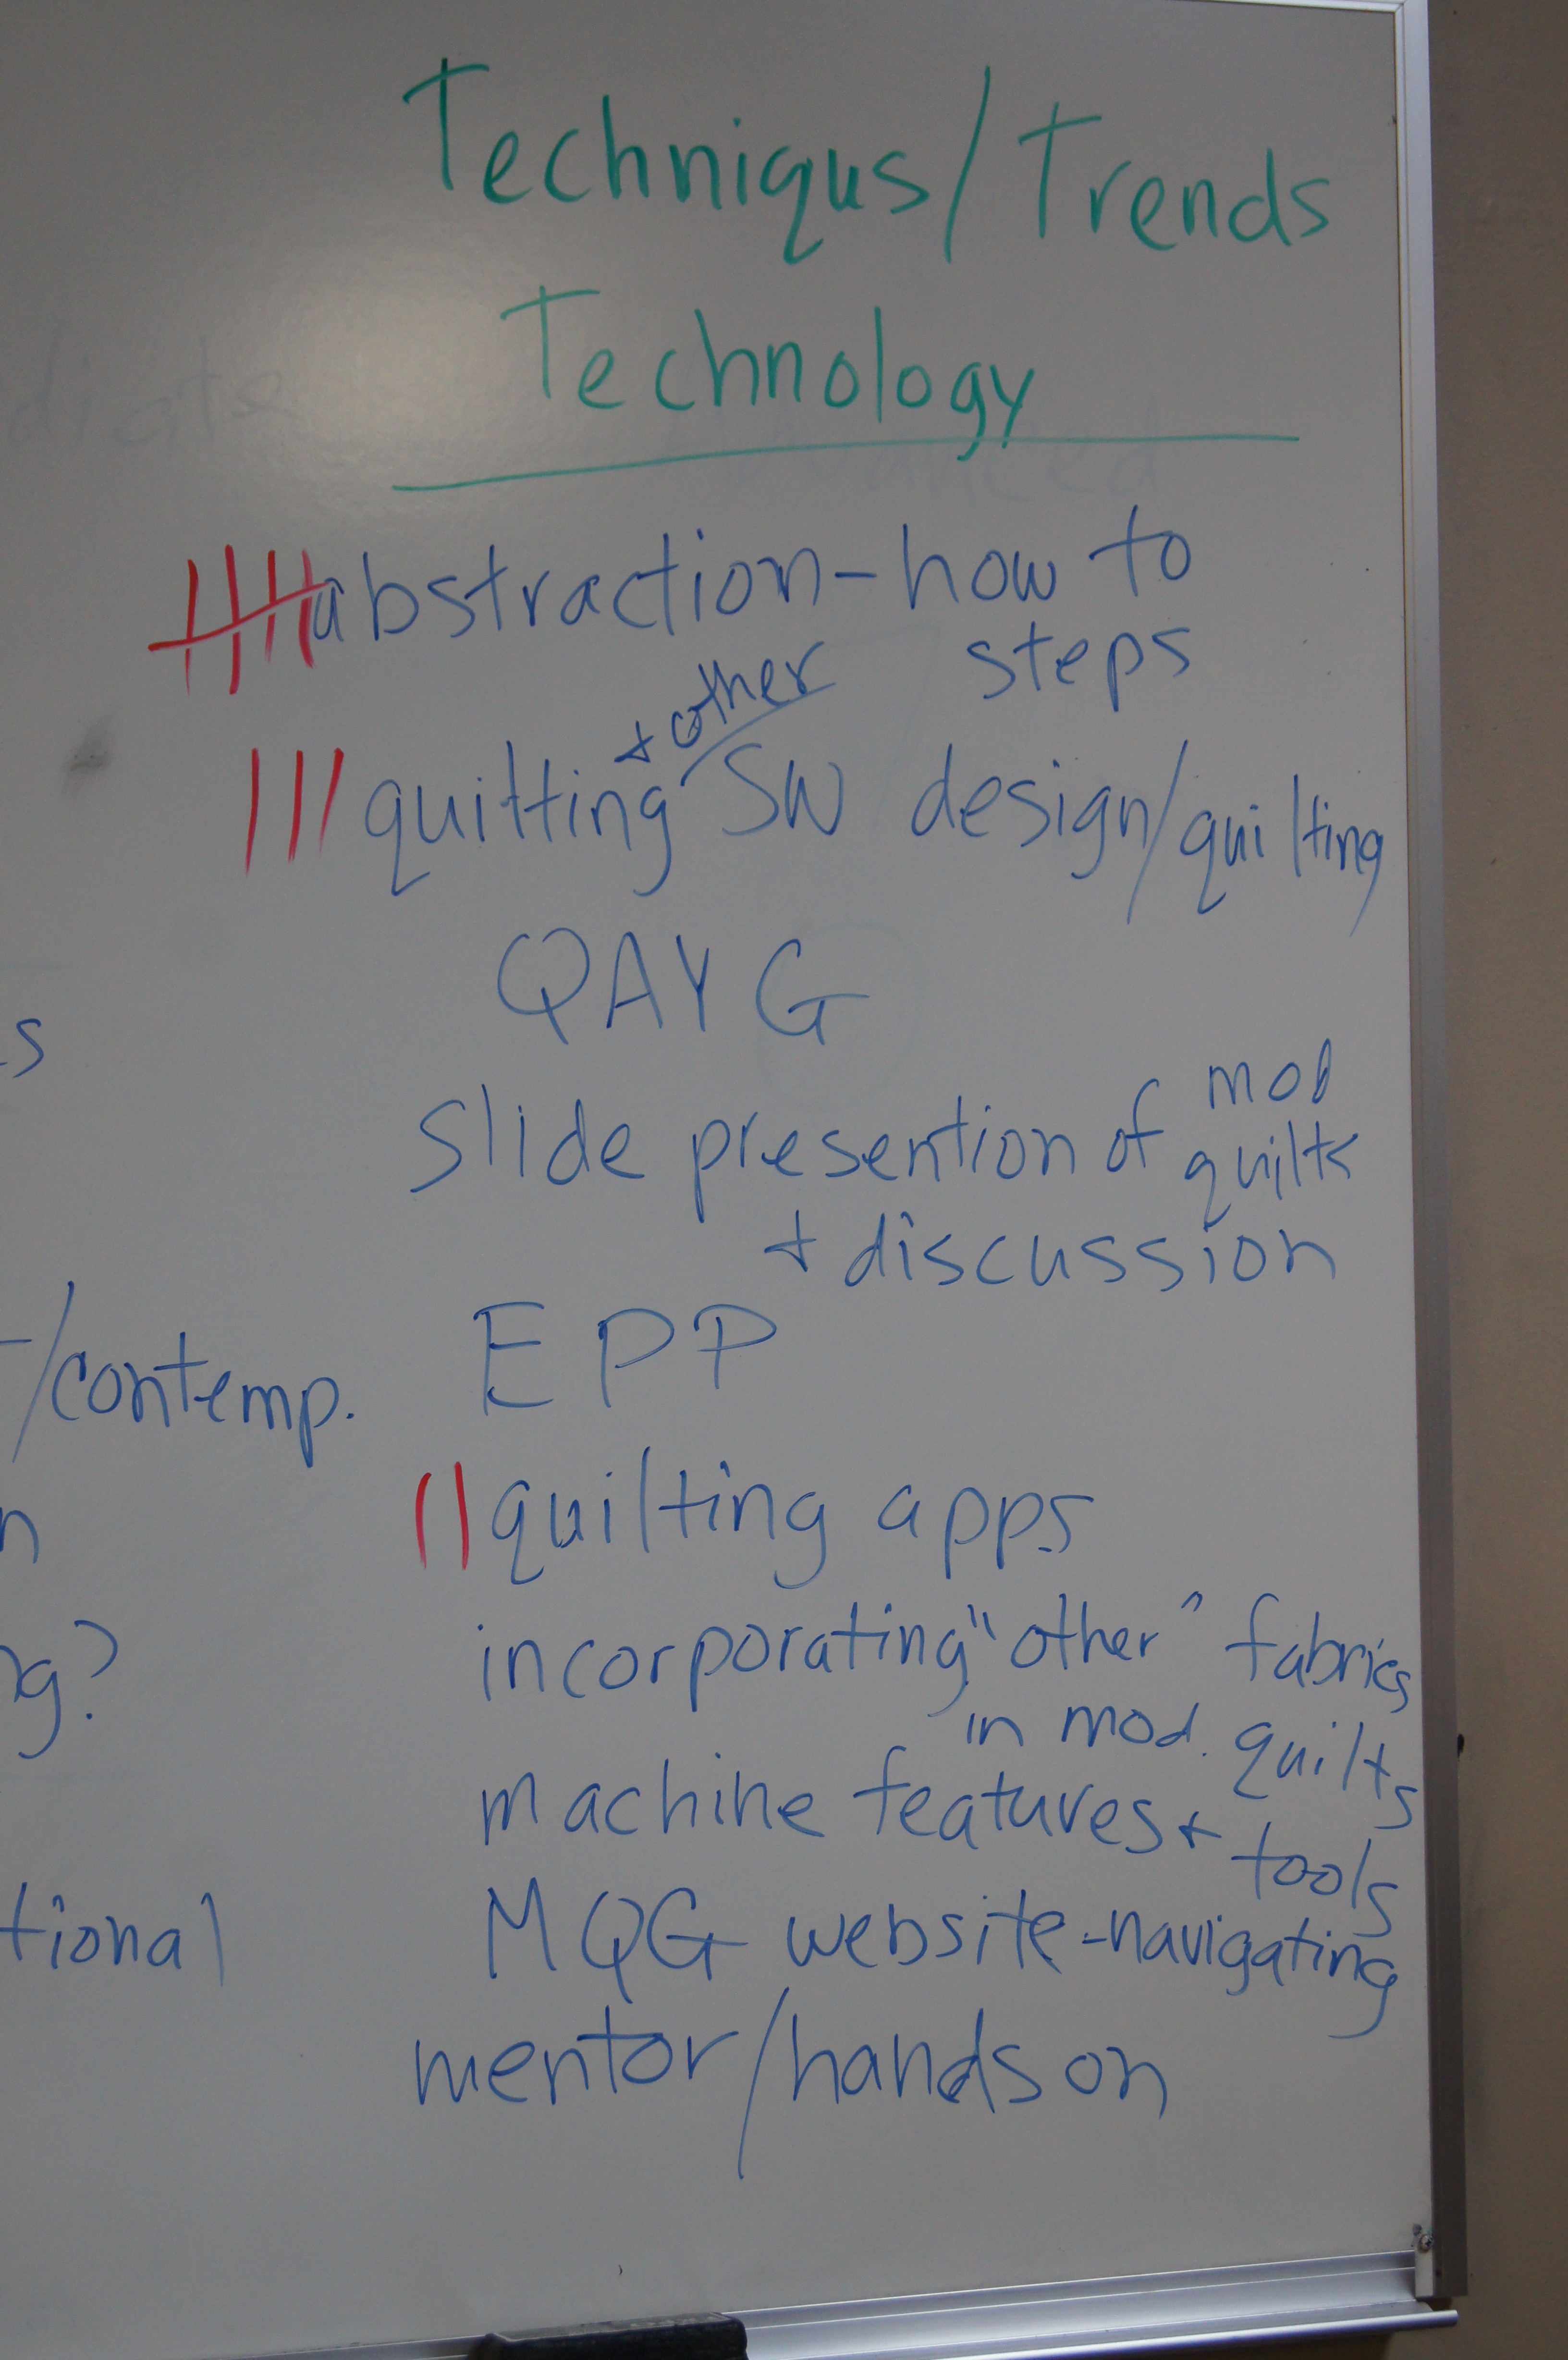 Techniqus/Trends
Technology
abstraction - how to
steps
+ other
quitting SW design/quilting
QAYG
slide presention of mod
quilts
+ discussion
EPP
/contemp.
quilting apps
n
incorporating "other" fabrics
ng?
in mod. quilts
machine features + tools
MQG website - navigating
tional
mentor/hands on